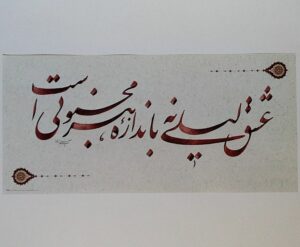 عشق لیلی نه باندازه هر مجنونی است